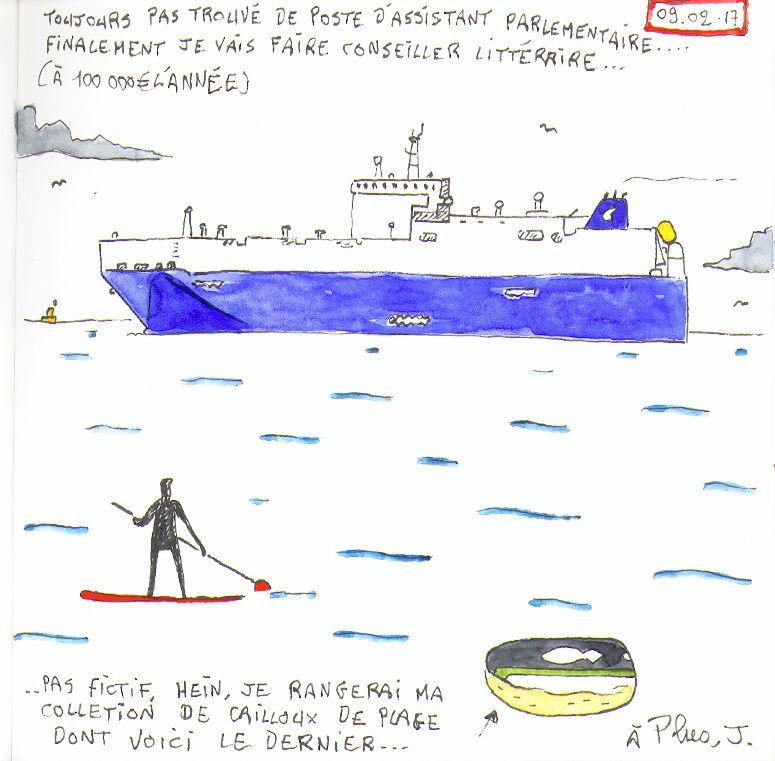 TOUJOURS PAS TROUVÉ DE POSTE D'ASSISTANT PARLEMENTAIRE....
09.02.17
FINALEMENT JE VAIS FAIRE CONSEILLER LITTÉRAIRE...
(À 100 000€ L'ANNÉE)
..PAS FICTIF, HEIN, JE RANGERAI MA
COLLETION DE CAILLOUX DE PLAGE
DONT VOICI LE DERNIER...
À Plus, J.